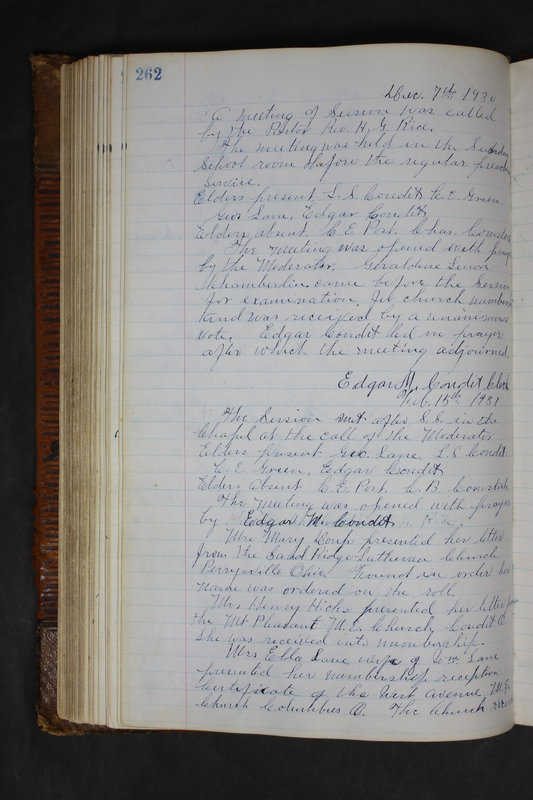 262
Dec. 7th 1930
A meeting of Session was called
by the Pastor Rev. H. G. Rice.
The meeting was held in the Sunday
School room before the regular preach
service.
Elders present L. S. Condit, C. E. Green
Geo Lane, Edgar Condit,
Elders absent. C. E. Port. Chas. Comstock
The meeting was opened with prayer
by the Moderator. Geraldine
Chamberlin came before the Session
for examination for church member
and was received by a unanimous
vote. Edgar Condit led in prayer
after which the meeting adjourned
Edgar M. Condit Clerk
Feb. 15th 1931
The Session met after S.S. in the
Chapel at the call of the Moderator
Elders present Geo. Lane, L S Condit
C. E Green, Edgar Condit
Elders Absent C. E. Port. C. B. Comstock
The meeting was opened with prayer
by Edgar M. Condit
Mrs. Mary Coup presented her letter
from the Sand Ridge Lutheran Church
Perrysville Ohio. Found in order her
name was ordered on the roll
Mrs Henry Hicks presented her letter from
the Mt Pleasant M.E. Church Condit O.
She was received into membership.
Mrs Ella Lane wife of Wm. Lane
presented her membership reception
certificate of the West Avenue, M.E.
Church Columbus O. The Church